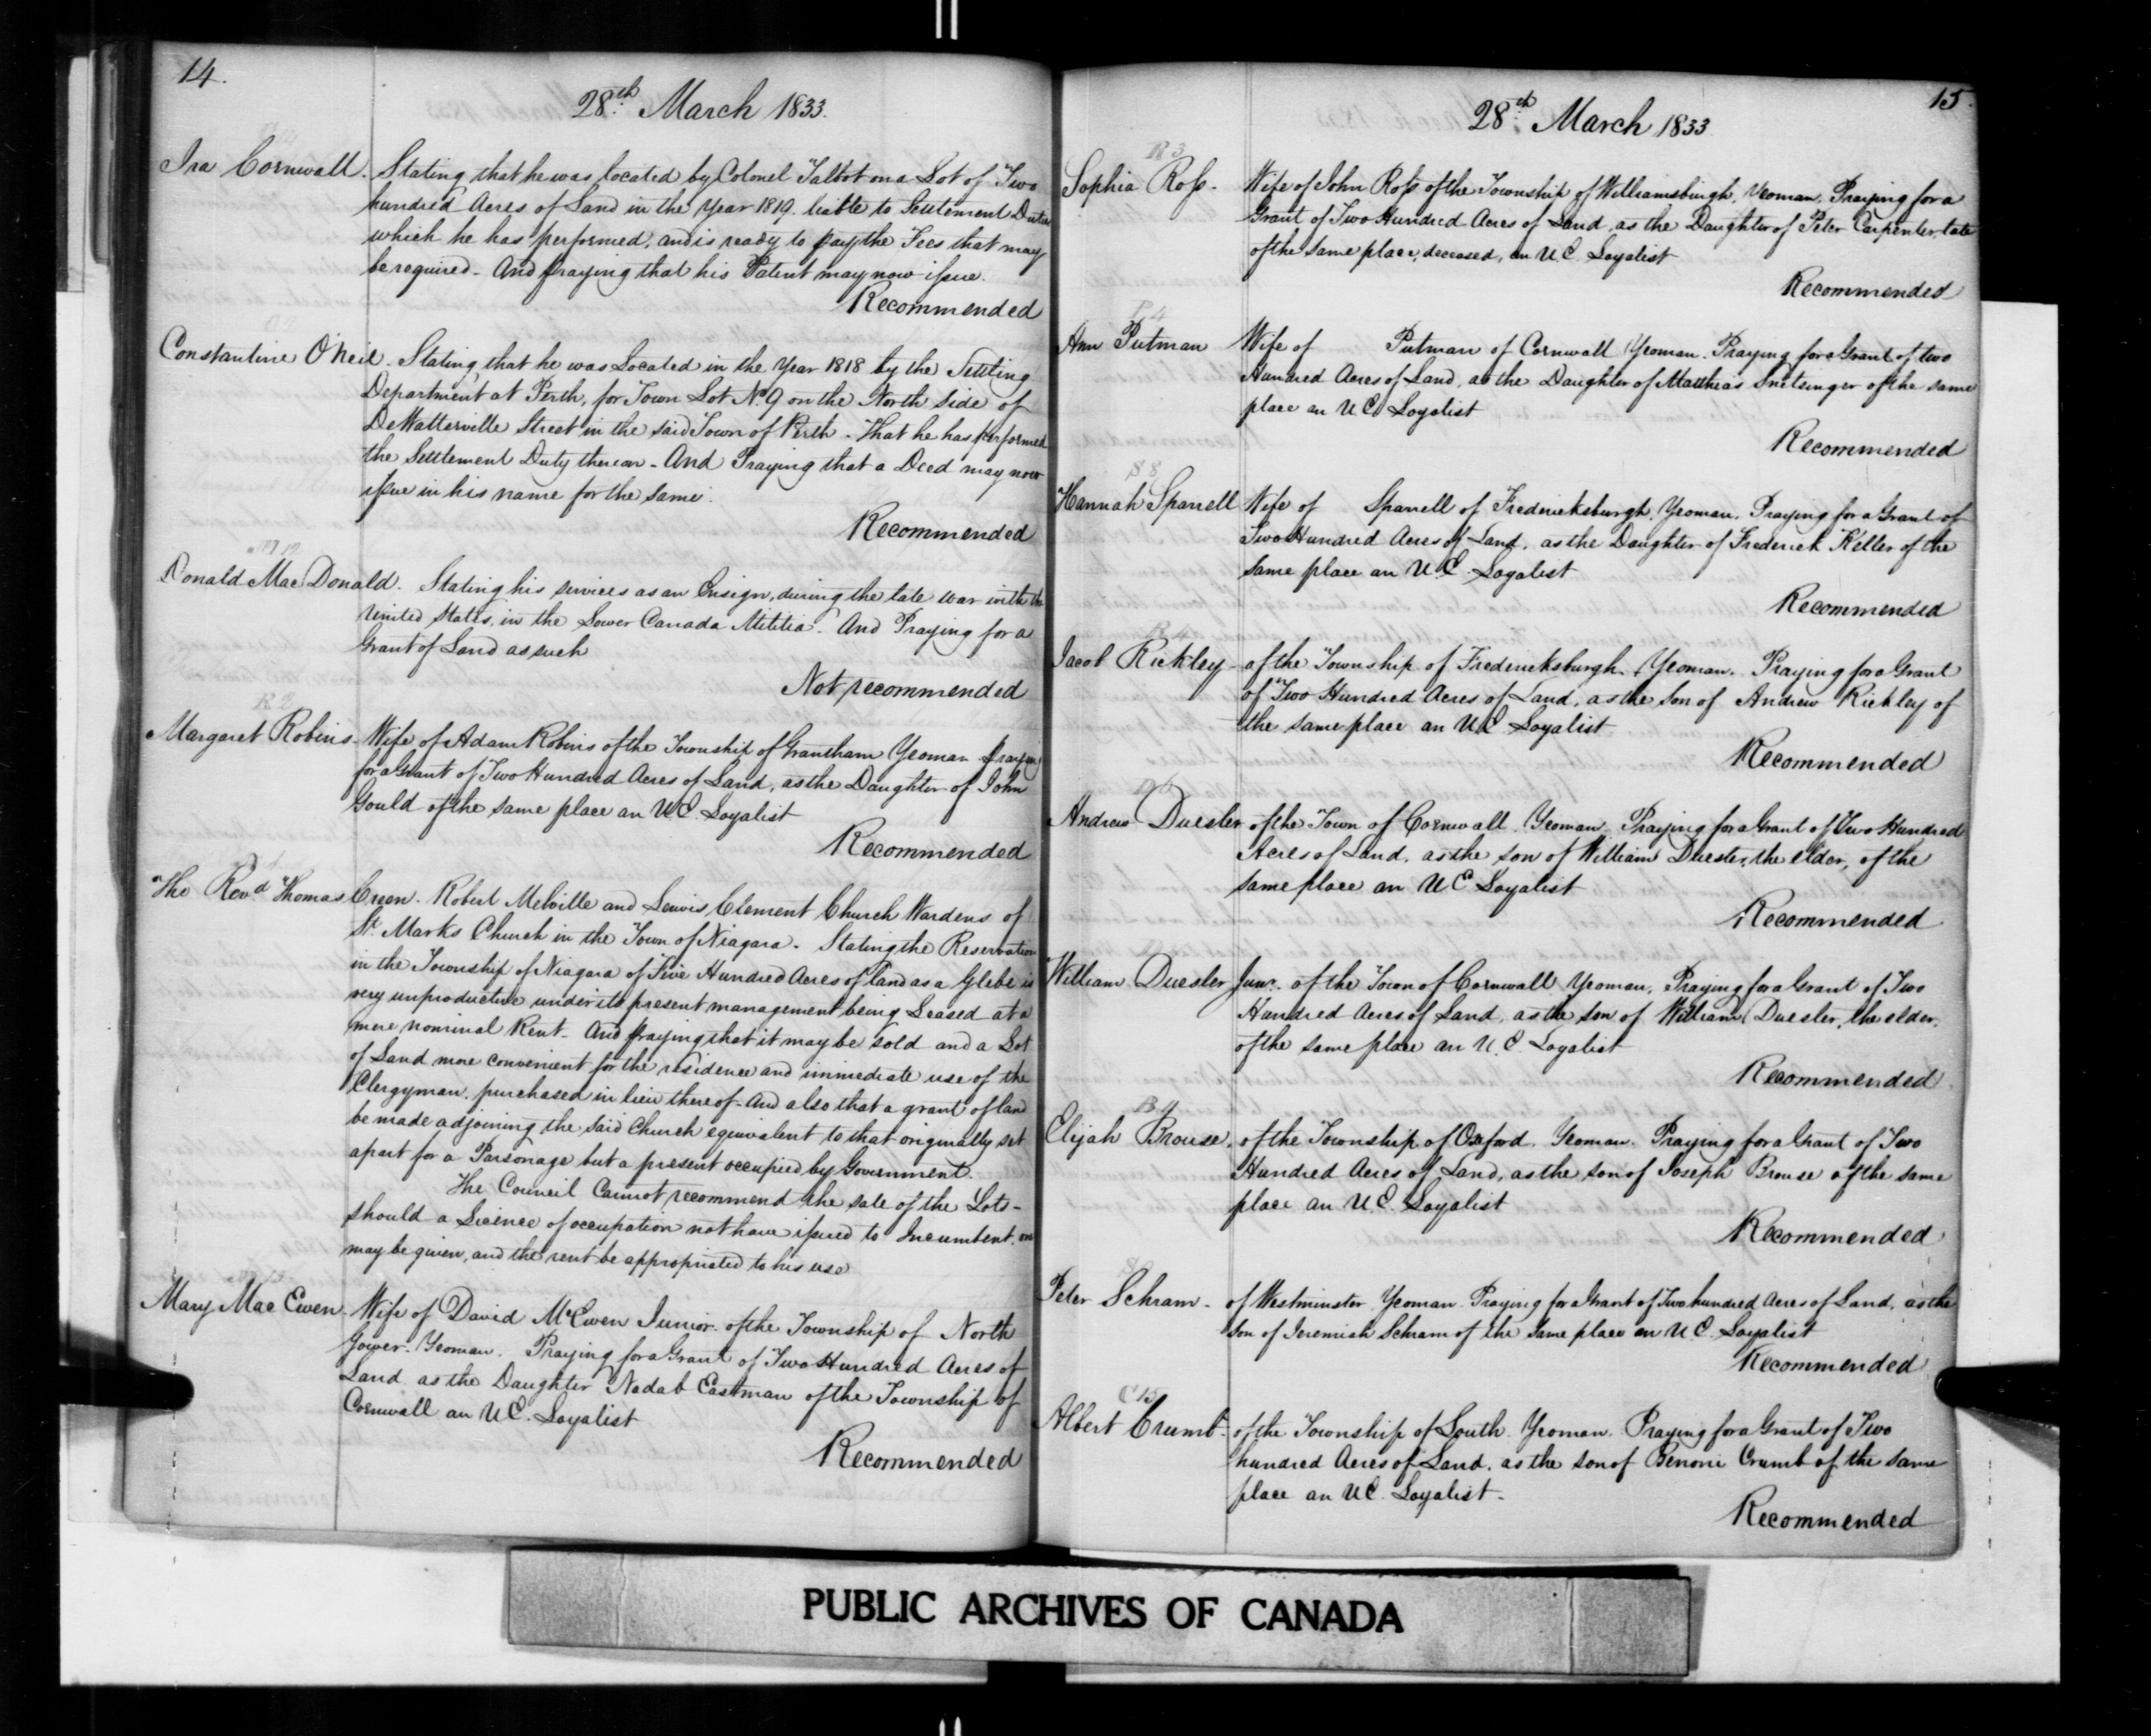 14.
28th March 1833.
Ira Cornwall. Stating that he was located by Colonel Talbot on a Lot of Two
hundred Acres of Land in the Year 1819. liable to Settlement Duties
which he has performed, and is ready to pay the Fees that may
be required - And praying that his Patent may now issue.
Recommended
Constantine O'Neil. Stating that he was Located in the Year 1818 by the Settling
Department at Perth, for Town Lot No. 9 on the North side of
DeWatterville Street in the said Town of Perth. That he has performed
the Settlement Duty thereon - And Praying that a Deed may now
issue in his name for the same.
Recommended
Donald Mac Donald. Stating his services as an Ensign, during the late war with the
United States, in the Lower Canada Militia. And Praying for a
Grant of Land as such
Not recommended
R 2
Margaret Robins - Wife of Adam Robins of the Township of Grantham Yeoman praying
for a Grant of Two Hundred Acres of Land, as the Daughter of John
Gould of the same place an U.E. Loyalist
Recommended
The Revd Thomas Creen. Robert Melville and Lewis Clement Church Wardens of
St. Marks Church in the Town of Niagara - Stating the Reservation
in the Township of Niagara of Five Hundred Acres of land as a Glebe is
very unproductive under its present management being Leased at a
mere nominal Rent - And praying that it may be sold and a Lot
of Land more convenient for the residence and immediate use of the
Clergyman, purchased in lieu thereof - And also that a grant of land
be made adjoining the said Church equivalent to that originally set
apart for a Parsonage but a present occupied by Government.
The Council Cannot recommend the sale of the Lots -
should a Licence of occupation not have issued to Incumbent, one
may be given, and the rent be appropriated to his use
Mary Mac Ewen - Wife of David McEwen Junior of the Township of North
Gower - Yeoman. Praying for a Grant of Two Hundred Acres of
Land as the Daughter Nadab Eastman of the Township of
Cornwall an U.E. Loyalist
Recommended
15.
28th March 1833
R 3
Sophia Ross - Wife of John Ross of the Township of Williamsburgh, Yeoman, Praying for a
Grant of Two Hundred Acres of Land, as the Daughter of Peter Carpenter, late
of the same place, deceased, an U.E. Loyalist
Recommended
P 4
Ann Putman Wife of Putman of Cornwall Yeoman. Praying for a Grant of two
Hundred Acres of Land, as the Daughter of Matthias Snetsinger of the same
place an U.E. Loyalist
Recommended
S 8
Hannah Sparrell Wife of Sparrell of Fredericksburgh, Yeoman, Praying for a Grant of
Two Hundred Acres of Land, as the Daughter of Frederick Keller of the
same place an U.E. Loyalist
Recommended
R 4
Jacob Rickley - of the Township of Fredericksburgh, Yeoman. Praying for a Grant
of Two Hundred Acres of Land, as the son of Andrew Rickley of
the same place an U.E. Loyalist
Recommended
Andrew Duesler of the Town of Cornwall Yeoman Praying for a Grant of Two Hundred
Acres of Land, as the son of William Duesler, the elder, of the
same place an U.E. Loyalist
Recommended
William Duesler Junr. of the Town of Cornwall Yeoman, Praying for a Grant of Two
Hundred Acres of Land, as the son of William Duesler, the elder,
of the same place an U.E. Loyalist
Recommended
B 4
Elijah Brouse, of the Township of Oxford. Yeoman. Praying for a Grant of Two
Hundred Acres of Land, as the son of Joseph Brouse of the same
place an U.E. Loyalist
Recommended
Peter Schram - of Westminster Yeoman Praying for a Grant of Two hundred Acres of Land, as the
son of Jeremiah Schram of the same place an U.E. Loyalist
Recommended
C 15
Albert Crumb - of the Township of Louth Yeoman. Praying for a Grant of Two
hundred Acres of Land, as the son of Benoni Crumb of the same
place an U.E. Loyalist -
Recommended
PUBLIC ARCHIVES OF CANADA